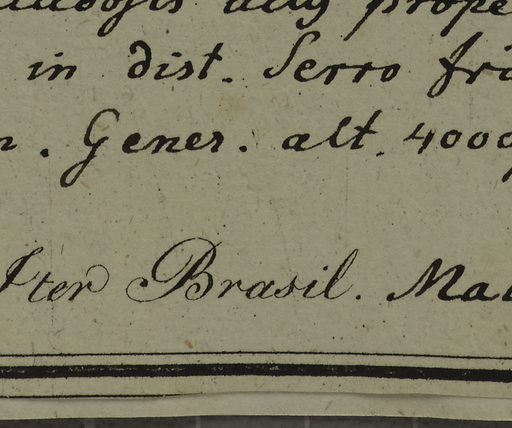 in dist. Serro fri
. Gener. alt. 4000
Iter Brasil. Ma